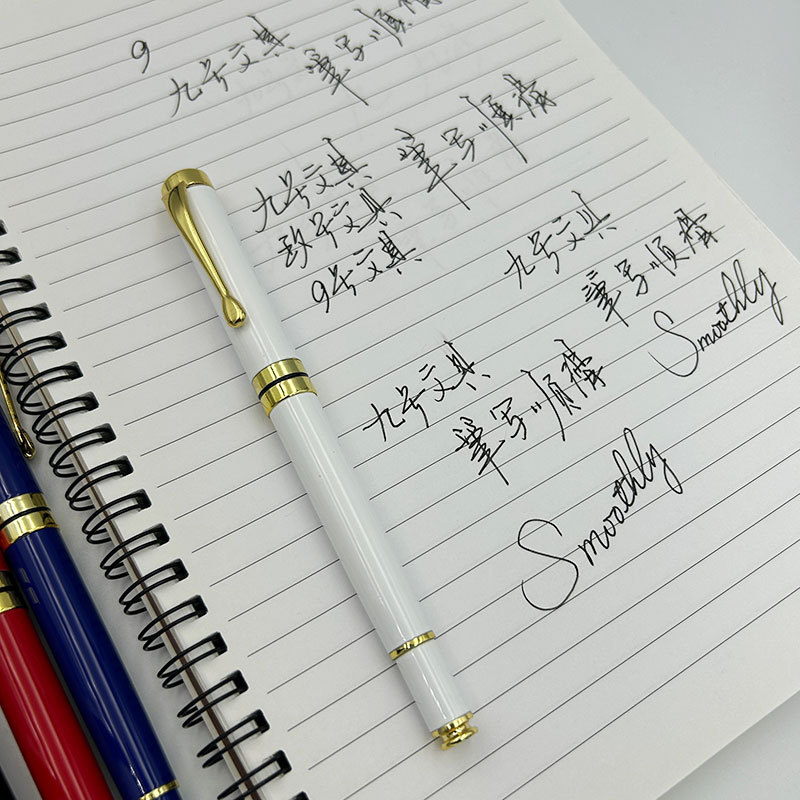 9
九号文具 書写顺滑
九号文具 書写顺滑
玖号文具
9号文具
九号文具
書写顺滑
Smoothly
九号文具
書写顺滑
Smoothly